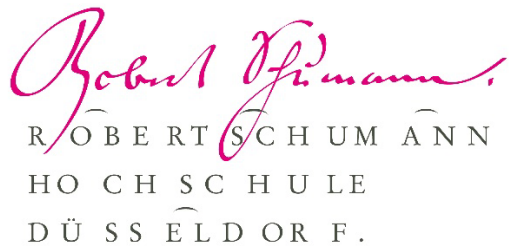 Robert Schumann.
ROBERT SCHUMANN
HOCHSCHULE
DÜSSELDORF.